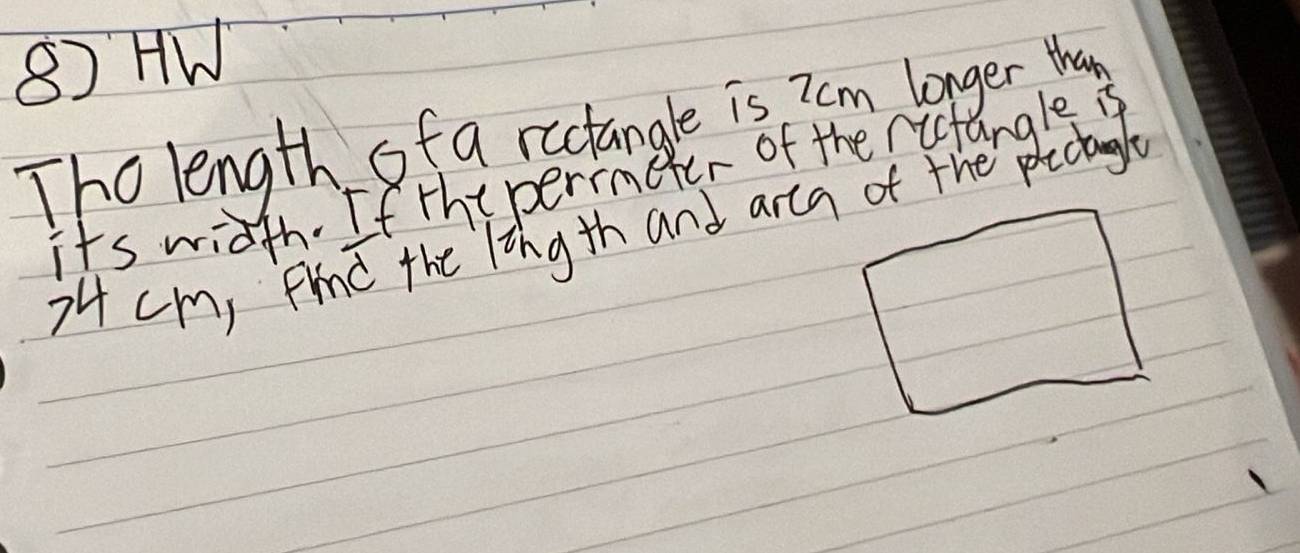 8) HW
The length of a rectangle is 7cm longer than
its width. If the perimeter of the rectangle is
74 cm, find the length and area of the rectangle